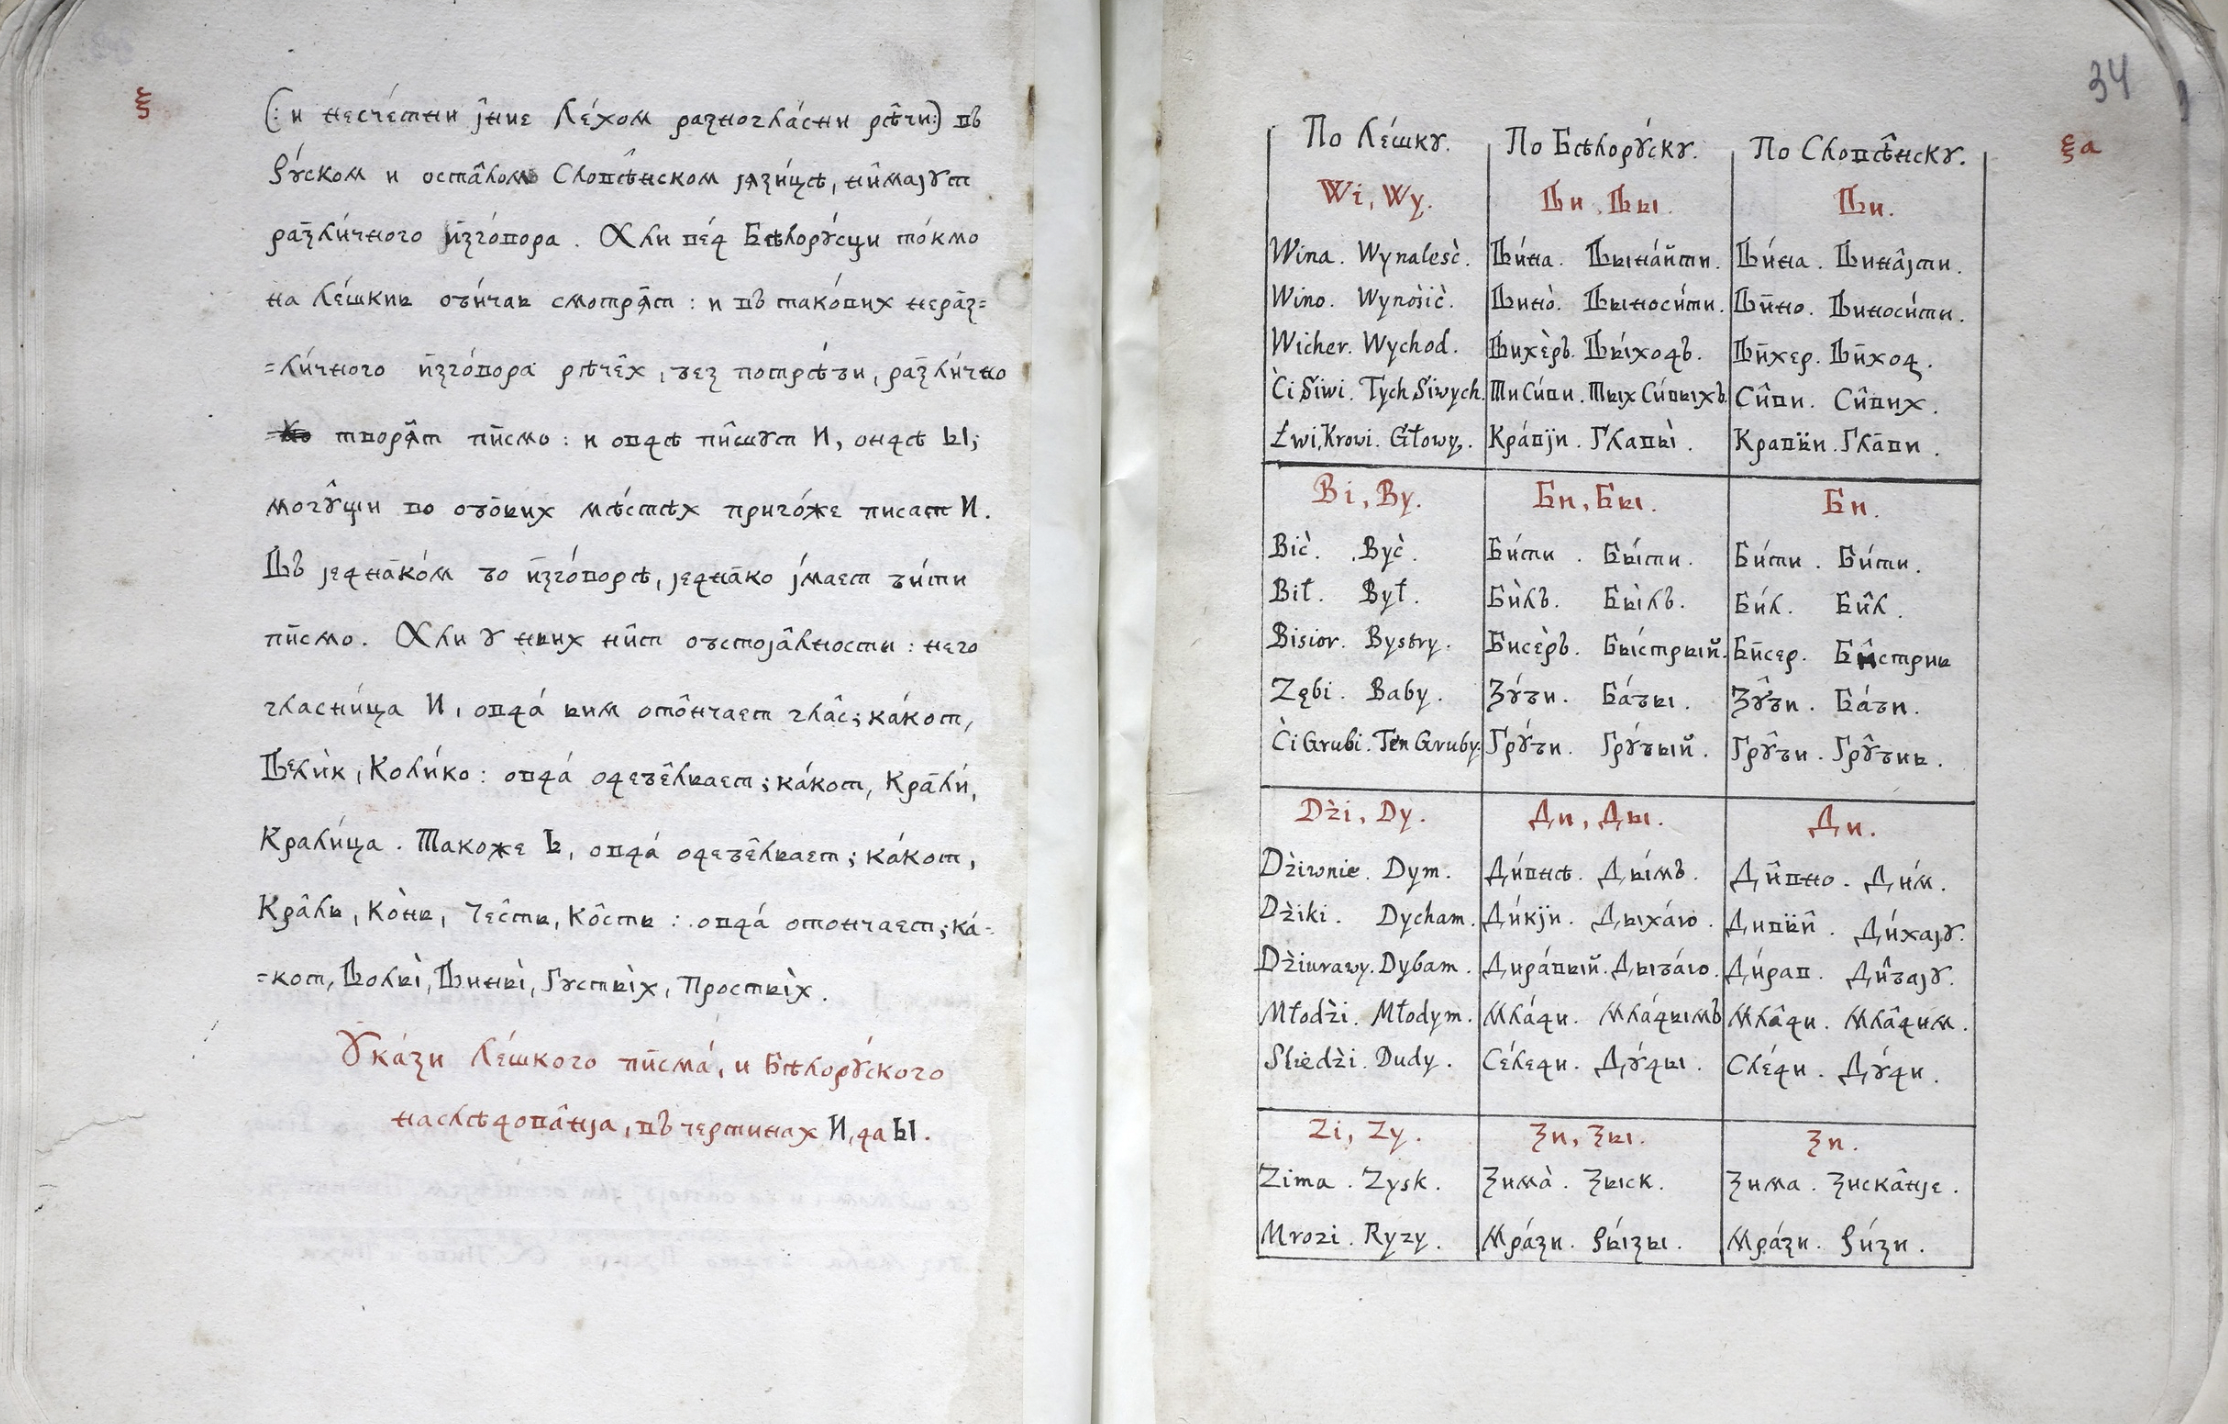 ѯ
(: и несче́тни ј̂ние Ле́хом разногла́сни рѣ̂чи:) въ
Ру́ском и оста̂лом Словѣ̂нском јазѝцѣ, ни̂мајут
разли́чного изго́вора. Али вед Бѣлору́сци то́кмо
на Ле́шкиь оби́чаь смотря̂т : и въ тако́вих нераз=
=ли́чного изго́вора рѣче̂х, без потрѣ́би, разли́чно
творя̂т писмо : и овдѣ пи̂шут И, ондѣ Ы;
могу̂щи во обоьих мѣ́стѣх приго́же писат И.
Въ једнако́м бо изго́ворѣ, једнако ј́мает би́ти
писмо. Али у ньих ни̂т обстоја̂лности : него
гласни́ца И, овда́ ьим ото̂нчает гла̂с; ка́кот,
Вели̇к, Коли́ко : овда́ одебе̂льает; ка́кот, Крали́,
Крали́ца. Такоже Ь, овда́ одебе̂льает; ка́кот,
Кра̂ль, Ко̀нь, Че̂сть, Ко̂сть : овда́ отончает; ка́=
=кот, Волы̀, Вины̀, Густы̀х, Просты̀х.
Ука́зи Ле́шкого писма́, и Бѣлору́ского
наслѣдова̂нја, въ чертинах И, да Ы.
34
ѯа
По Ле́шку. По Бѣлору́ску. По Словѣ̂нску.
Wi, Wy. Ви, Вы. Ви.
Wina. Wynaleść. Ви́на. Вына́йти. Ви́на. Вина̂јти.
Wino. Wynośić. Вино̀. Выноси́ти. Вино. Виноси́ти.
Wicher. Wychod. Вихѐръ. Вы́ходъ. Вихер. Виход.
Ći Śiwi. Tych Śiwych. Ти Си́ви. Тых Си́выхъ. Си̂ви. Си̂вих.
Łwi, Krowi. Głowy. Кра́вји. Главы̀. Кравьи. Глави.
Bi, By. Би, Бы. Би.
Bić. Być. Би́ти. Бы́ти. Би́ти. Би́ти.
Bił. Był. Би̇лъ. Бы̀лъ. Би́л. Би̂л.
Bisior. Bystry. Бисѐръ. Бы́стрый. Бисер. Бистриь
Zębi. Baby. Зу́би. Ба́бы. Зу̂би. Ба́би.
Ći Grubi. Ten Gruby. Гру́би. Гру́бый. Гру̂би. Гру̂биь.
Dźi, Dy. Ди, Ды. Ди.
Dźiwnie. Dym. Ди́внѣ. Ды́мъ. Ди̂вно. Ди́м.
Dźiki. Dycham. Ди́кји. Дыха́ю. Дивьи̂. Ди́хају.
Dźiurawy. Dybam. Дира́вый. Дыба́ю. Ди́рав. Ди̂бају.
Młodźi. Młodym. Мла́ди. Мла́дымъ Мла̂ди. Мла̂дим.
Sliedźi. Dudy. Се́леди. Ду́ды. Сле́ди. Ду́ди.
Zi, Zy. Зи, Зы. Зи.
Zima. Zysk. Зима̀. Зыск. Зима. Зиска̂нје.
Mrozi. Ryzy. Мра́зи. Ры́зы. Мра́зи. Ри́зи.